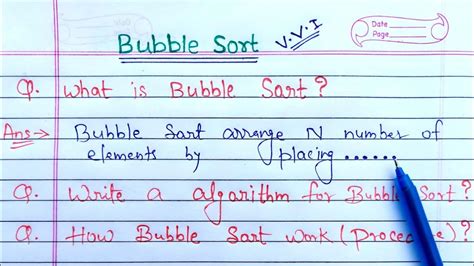 Bubble Sort V.V.I
Date
Page
Q. What is Bubble Sart?
Ans → Bubble Sart arrange N number of
elements by placing......
Q. Write a algorithm for Bubble Sort?
Q. How Bubble Sart work (procedure)?